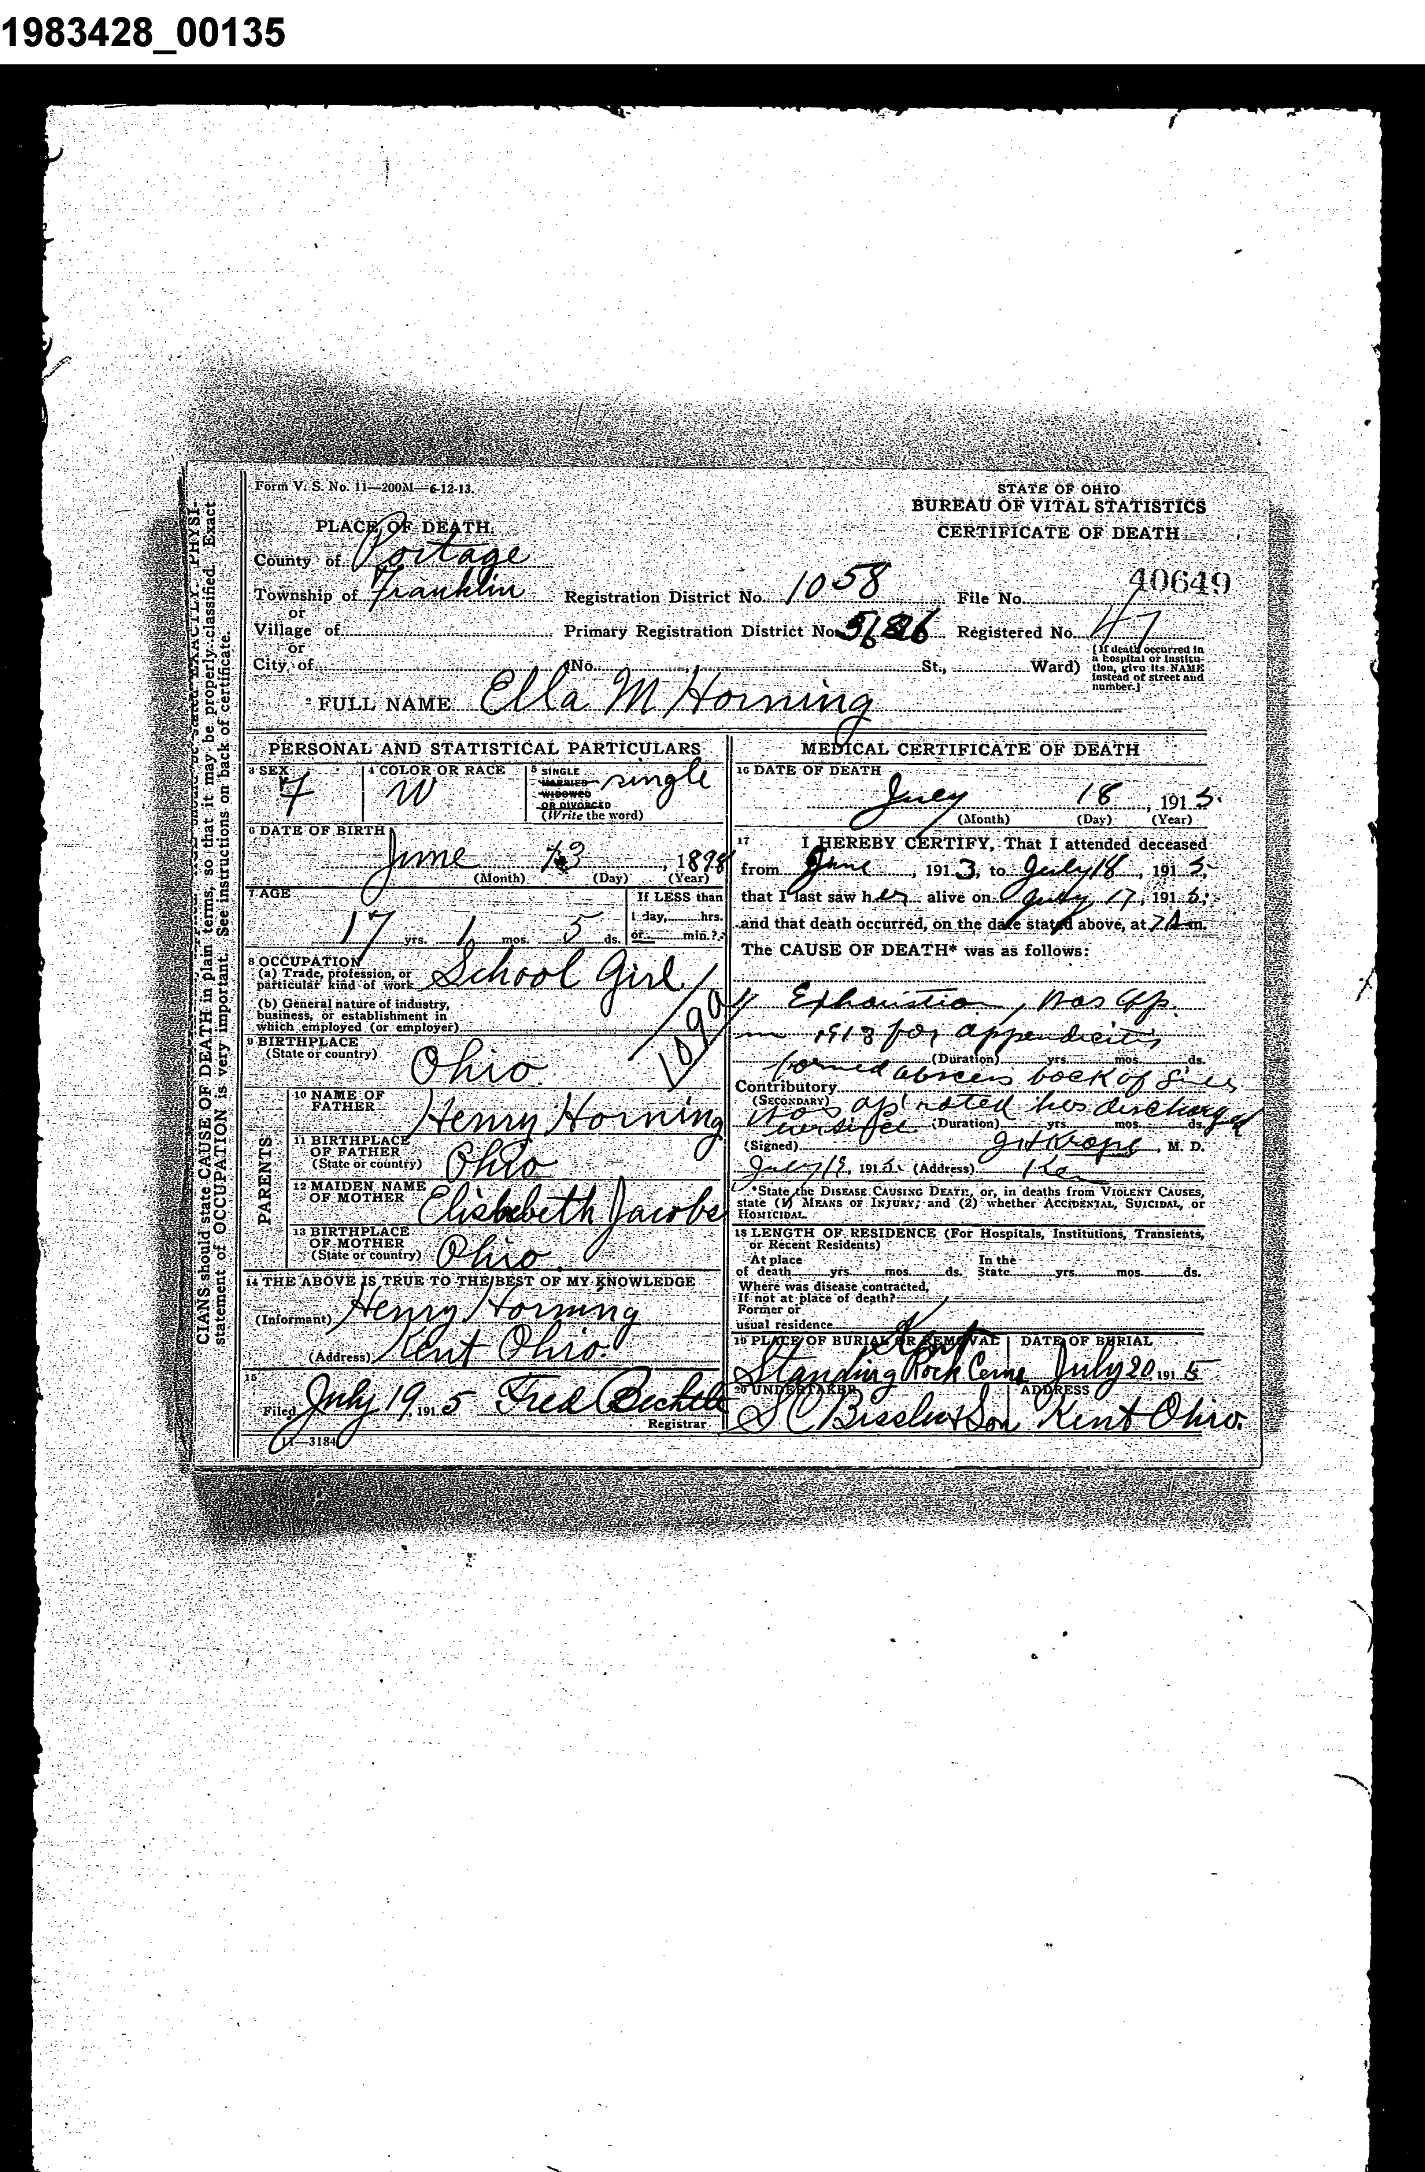 1983428_00135
Form V. S. No. 11—200M—6-12-13.
STATE OF OHIO
BUREAU OF VITAL STATISTICS
CERTIFICATE OF DEATH
PLACE OF DEATH
County of Portage
Township of Franklin Registration District No. 1058 File No. 40649
or
Village of Primary Registration District No. Registered No. 47
or
City of (No. St., Ward) (If death occurred in a hospital or institution, give its NAME instead of street and number.)
2 FULL NAME Ella M Horning
PERSONAL AND STATISTICAL PARTICULARS
3 SEX F
4 COLOR OR RACE W
5 SINGLE MARRIED WIDOWED OR DIVORCED (Write the word) single
6 DATE OF BIRTH June 13, 1898
(Month) (Day) (Year)
7 AGE 17 yrs. 1 mos. 5 ds.
If LESS than 1 day, hrs. or min.?
8 OCCUPATION
(a) Trade, profession, or particular kind of work School Girl
(b) General nature of industry, business, or establishment in which employed (or employer)
9 BIRTHPLACE (State or country) Ohio
1090
PARENTS
10 NAME OF FATHER Henry Horning
11 BIRTHPLACE OF FATHER (State or country) Ohio
12 MAIDEN NAME OF MOTHER Elisbebeth Jacobs
13 BIRTHPLACE OF MOTHER (State or country) Ohio
14 THE ABOVE IS TRUE TO THE BEST OF MY KNOWLEDGE
(Informant) Henry Horning
(Address) Kent Ohio.
15
Filed July 19, 1915 Fred Bechtle
Registrar
11—3184
MEDICAL CERTIFICATE OF DEATH
16 DATE OF DEATH
July 18, 1915.
(Month) (Day) (Year)
17 I HEREBY CERTIFY, That I attended deceased
from June, 1913, to July 18, 1915,
that I last saw her alive on July 17, 1915,
and that death occurred, on the date stated above, at 7 A m.
The CAUSE OF DEATH* was as follows:
Exhaustion, was op.
in 1913 for appendicitis
(Duration) yrs. mos. ds.
formed abscess back of
Contributory
(SECONDARY) was op'rated has discharged
(Duration) yrs. mos. ds.
(Signed) J H Krape, M. D.
July 19, 1915 (Address)
*State the DISEASE CAUSING DEATH, or, in deaths from VIOLENT CAUSES,
state (1) MEANS OF INJURY; and (2) whether ACCIDENTAL, SUICIDAL, or
HOMICIDAL.
18 LENGTH OF RESIDENCE (For Hospitals, Institutions, Transients,
or Recent Residents)
At place of death yrs. mos. ds. In the State yrs. mos. ds.
Where was disease contracted,
If not at place of death?
Former or
usual residence
19 PLACE OF BURIAL OR REMOVAL Kent
Standing Rock Ceme
DATE OF BURIAL July 20, 1915
20 UNDERTAKER S C Bissler & Son
ADDRESS Kent Ohio.
CIANS should state CAUSE OF DEATH in plain terms, so that it may be properly classified. Exact
statement of OCCUPATION is very important. See instructions on back of certificate.